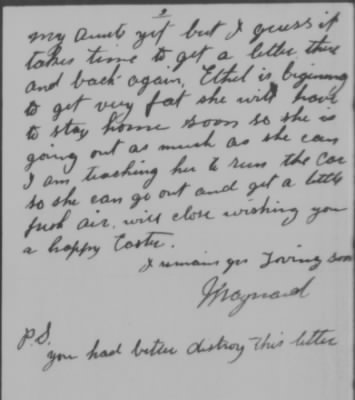 2
my aunts yet but I guess it
takes time to get a letter there
and back again. Ethel is begining
to get very fat she will have
to stay home soon so she is
going out as much as she can
I am teaching her to run the car
so she can go out and get a little
fresh air. will close wishing you
a happy Easter.
I remain yrs loving son
Maynard
P.S.
you had better distroy this letter